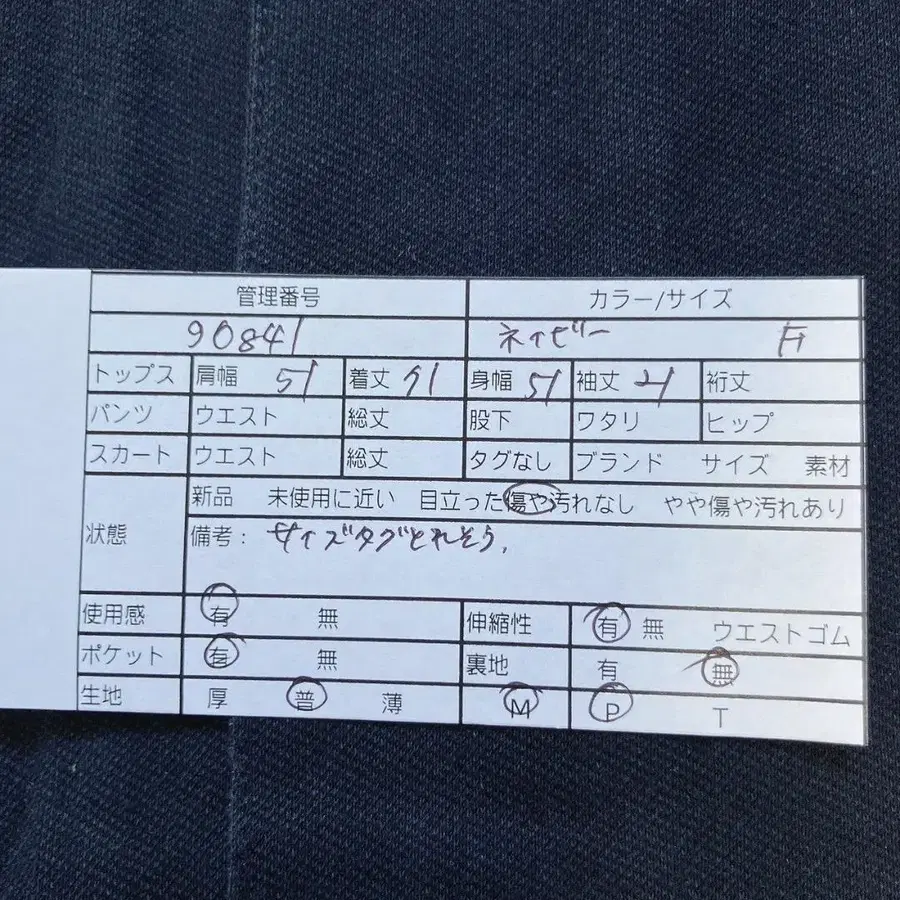 管理番号 カラー/サイズ
90841 ネイビー
トップス 肩幅 51 着丈 71 身幅 51 袖丈 21 裄丈
パンツ ウエスト 総丈 股下 ワタリ ヒップ
スカート ウエスト 総丈 タグなし ブランド サイズ 素材
状態 新品 未使用に近い 目立った傷や汚れなし やや傷や汚れあり
備考: サイズタグとれそう.
使用感 有 無 伸縮性 有 無 ウエストゴム
ポケット 有 無 裏地 有 無
生地 厚 普 薄 M P T